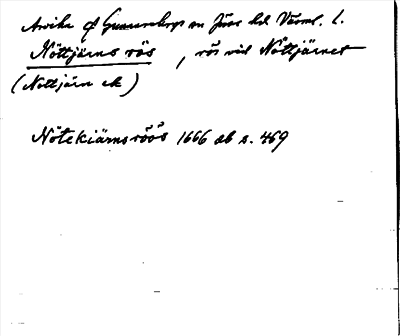 Arvika ₵ Gunnarskogs sn Jösse hd Värml. l.
Nöttjärns rös, rös vid Nöttjärnet
(Nöttjärn ek)
Nötekiärnsröös 1666 db s. 469